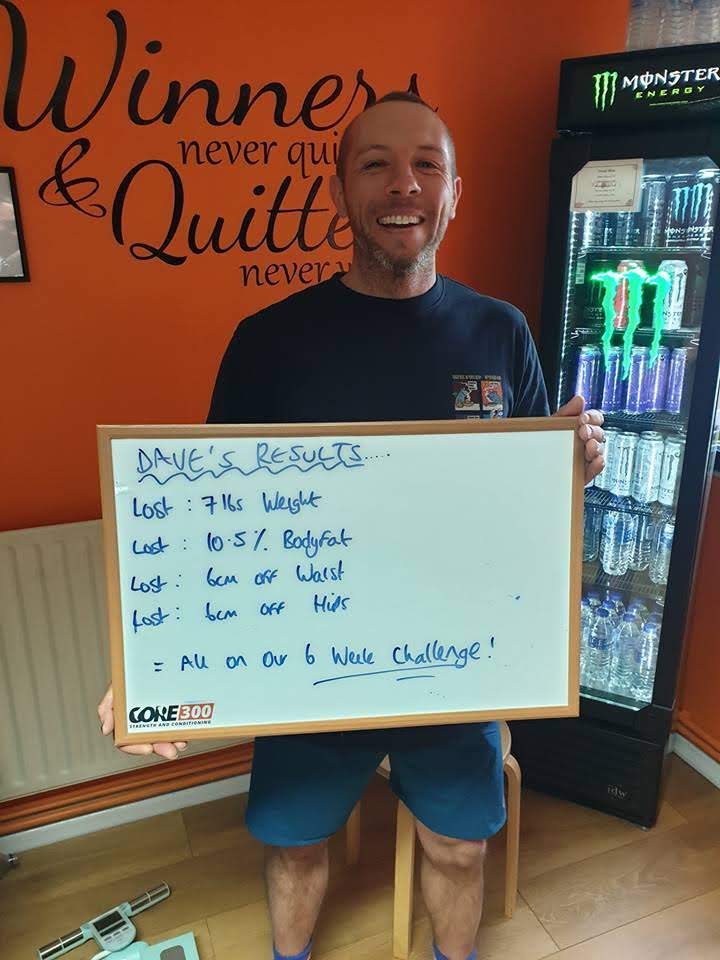 Winners
never qui
& Quitte
never
MONSTER
ENERGY
DAVE'S RESULTS.....
Lost : 7 lbs Weight
Lost : 10.5% Bodyfat
Lost : 6cm off Waist
Lost : 6cm off Hips
= All on Our 6 Week Challenge!
CORE 300
STRENGTH AND CONDITIONING
idw